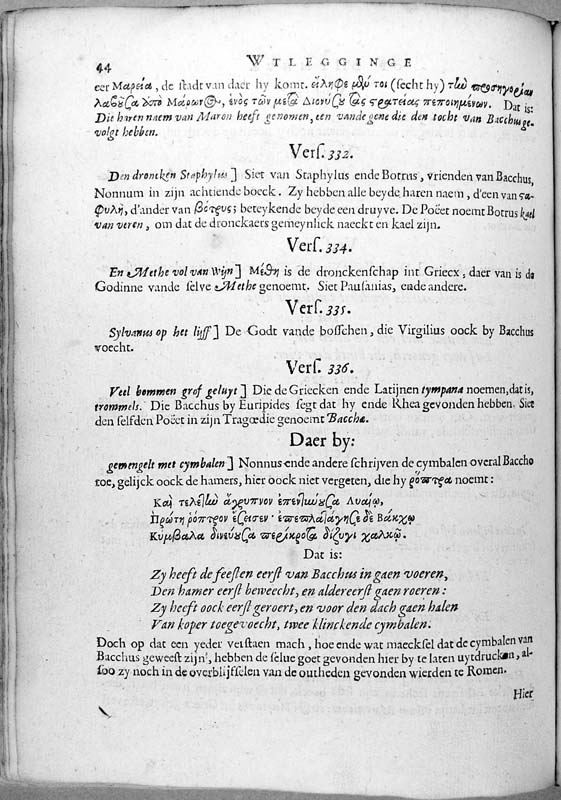 44 WTLEGGINGE
eer Μαρεία, de stadt van daer hy komt. εἴληφε μὲν τοι (secht hy) τὴν προσηγορίαν
λαβοῦσα ἀπὸ Μάρωνος, ἑνὸς τῶν μετὰ Διονύσου τὰς στρατείας πεποιημένων. Dat is:
Die haren naem van Maron heeft genomen, een vande gene die den tocht van Bacchus ge-
volgt hebben.
Vers. 332.
Den droncken Staphylus] Siet van Staphylus ende Botrus, vrienden van Bacchus,
Nonnum in zijn achtiende boeck. Zy hebben alle beyde haren naem, d'een van στα-
φυλὴ, d'ander van βότρυς; beteykende beyde een druyve. De Poët noemt Botrus kael
van veren, om dat de dronckaers gemeynlick naeckt en kael zijn.
Vers. 334.
En Methe vol van Wijn] Μέθη is de dronckenschap int Griecx, daer van is de
Godinne vande selve Methe genoemt. Siet Pausanias, ende andere.
Vers. 335.
Sylvanus op het lijff] De Godt vande bosschen, die Virgilius oock by Bacchus
voecht.
Vers. 336.
Veel bommen grof geluyt] Die de Griecken ende Latijnen tympana noemen, dat is,
trommels. Die Bacchus by Euripides segt dat hy ende Rhea gevonden hebben. Siet
den selfden Poët in zijn Tragœdie genoemt Bacchæ.
Daer by:
gemengelt met cymbalen] Nonnus ende andere schrijven de cymbalen overal Baccho
toe, gelijck oock de hamers, hier oock niet vergeten, die hy ῥόπτρα noemt:
Καὶ τελετὴν ἄγρυπνον ἐπεντύνουσα Λυαίῳ,
Πρώτη ῥόπτρον ἔσεισεν· ἐπεπλατάγησε δὲ Βάκχῳ
Κύμβαλα δινεύουσα περίκροτα δίζυγι χαλκῷ.
Dat is:
Zy heeft de feesten eerst van Bacchus in gaen voeren,
Den hamer eerst beweecht, en aldereerst gaen roeren:
Zy heeft oock eerst geroert, en voor den dach gaen halen
Van koper toegevoecht, twee klinckende cymbalen.
Doch op dat een yeder verstaen mach, hoe ende wat maecksel dat de cymbalen van
Bacchus geweest zijn, hebben de selve goet gevonden hier by te laten uytdrucken, al-
soo zy noch in de overblijfselen van de outheden gevonden wierden te Romen.
Hier